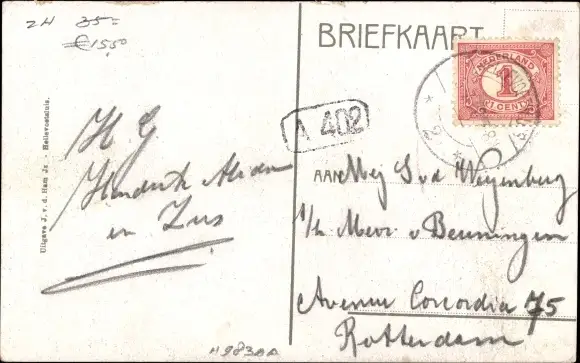 ZH 35=
€15,50
BRIEFKAART
NEDERLAND
1
1 CENT
A 402
Uitgave J. v. d. Ham Jz. - Hellevoetsluis.
H G
Hendrik
en Zus
AAN Mej S. v d Weijenberg
p/a Mevr v Beuningen
Avenue Concordia 75
Rotterdam